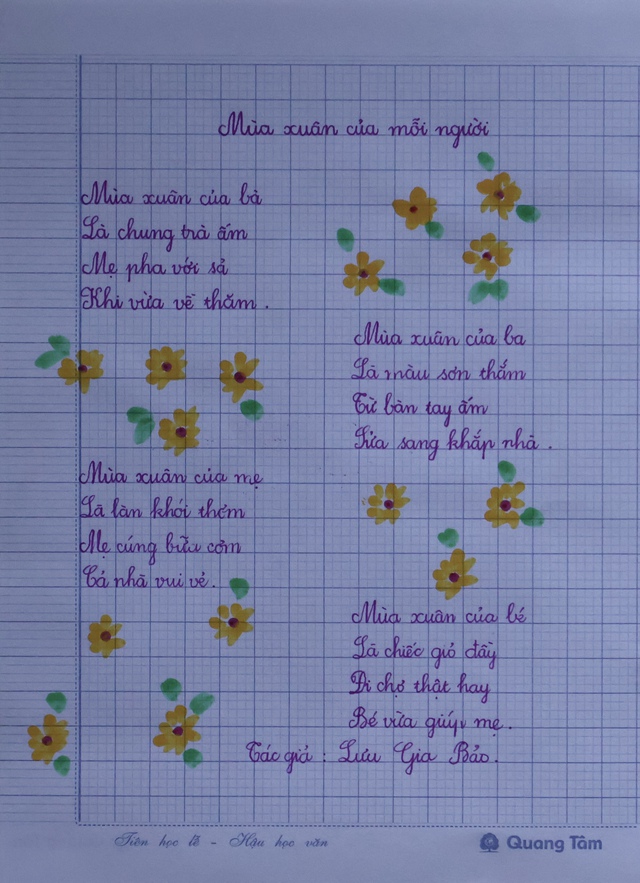 Mùa xuân của mỗi người
Mùa xuân của bà
Là chung trà ấm
Mẹ pha với sả
Khi vừa về thăm.
Mùa xuân của ba
Là màu sơn thắm
Từ bàn tay ấm
Sửa sang khắp nhà.
Mùa xuân của mẹ
Là làn khói thơm
Mẹ cúng bữa cơm
Cả nhà vui vẻ.
Mùa xuân của bé
Là chiếc giỏ đầy
Đi chợ thật hay
Bé vừa giúp mẹ.
Tác giả : Lưu Gia Bảo.
Tiên học lễ - Hậu học văn
Quang Tâm